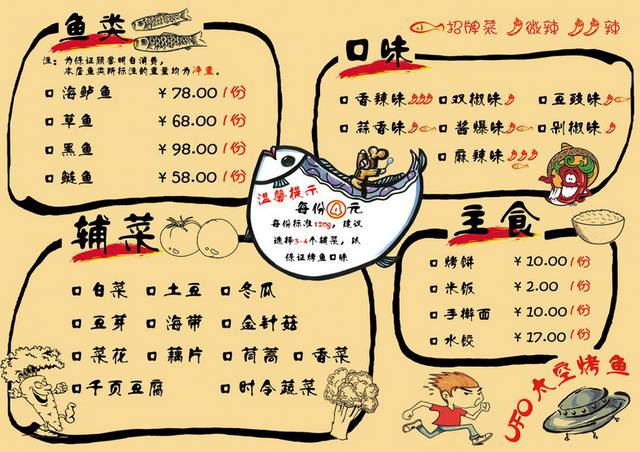 鱼类
注:为保证顾客明白消费,
本店鱼类所标注的重量均为净重。
海鲈鱼 ¥78.00/份
草鱼 ¥68.00/份
黑鱼 ¥98.00/份
鲢鱼 ¥58.00/份
招牌菜 微辣 辣
口味
香辣味 双椒味 豆豉味
蒜香味 酱爆味 剁椒味
麻辣味
温馨提示
每份④元
每份标准120g,建议
选择3-4个辅菜,以
保证烤鱼口味
辅菜
白菜 土豆 冬瓜
豆芽 海带 金针菇
菜花 藕片 茼蒿 香菜
千页豆腐 时令蔬菜
主食
烤饼 ¥10.00/份
米饭 ¥2.00 /份
手擀面 ¥10.00/份
水饺 ¥17.00/份
UFO太空烤鱼